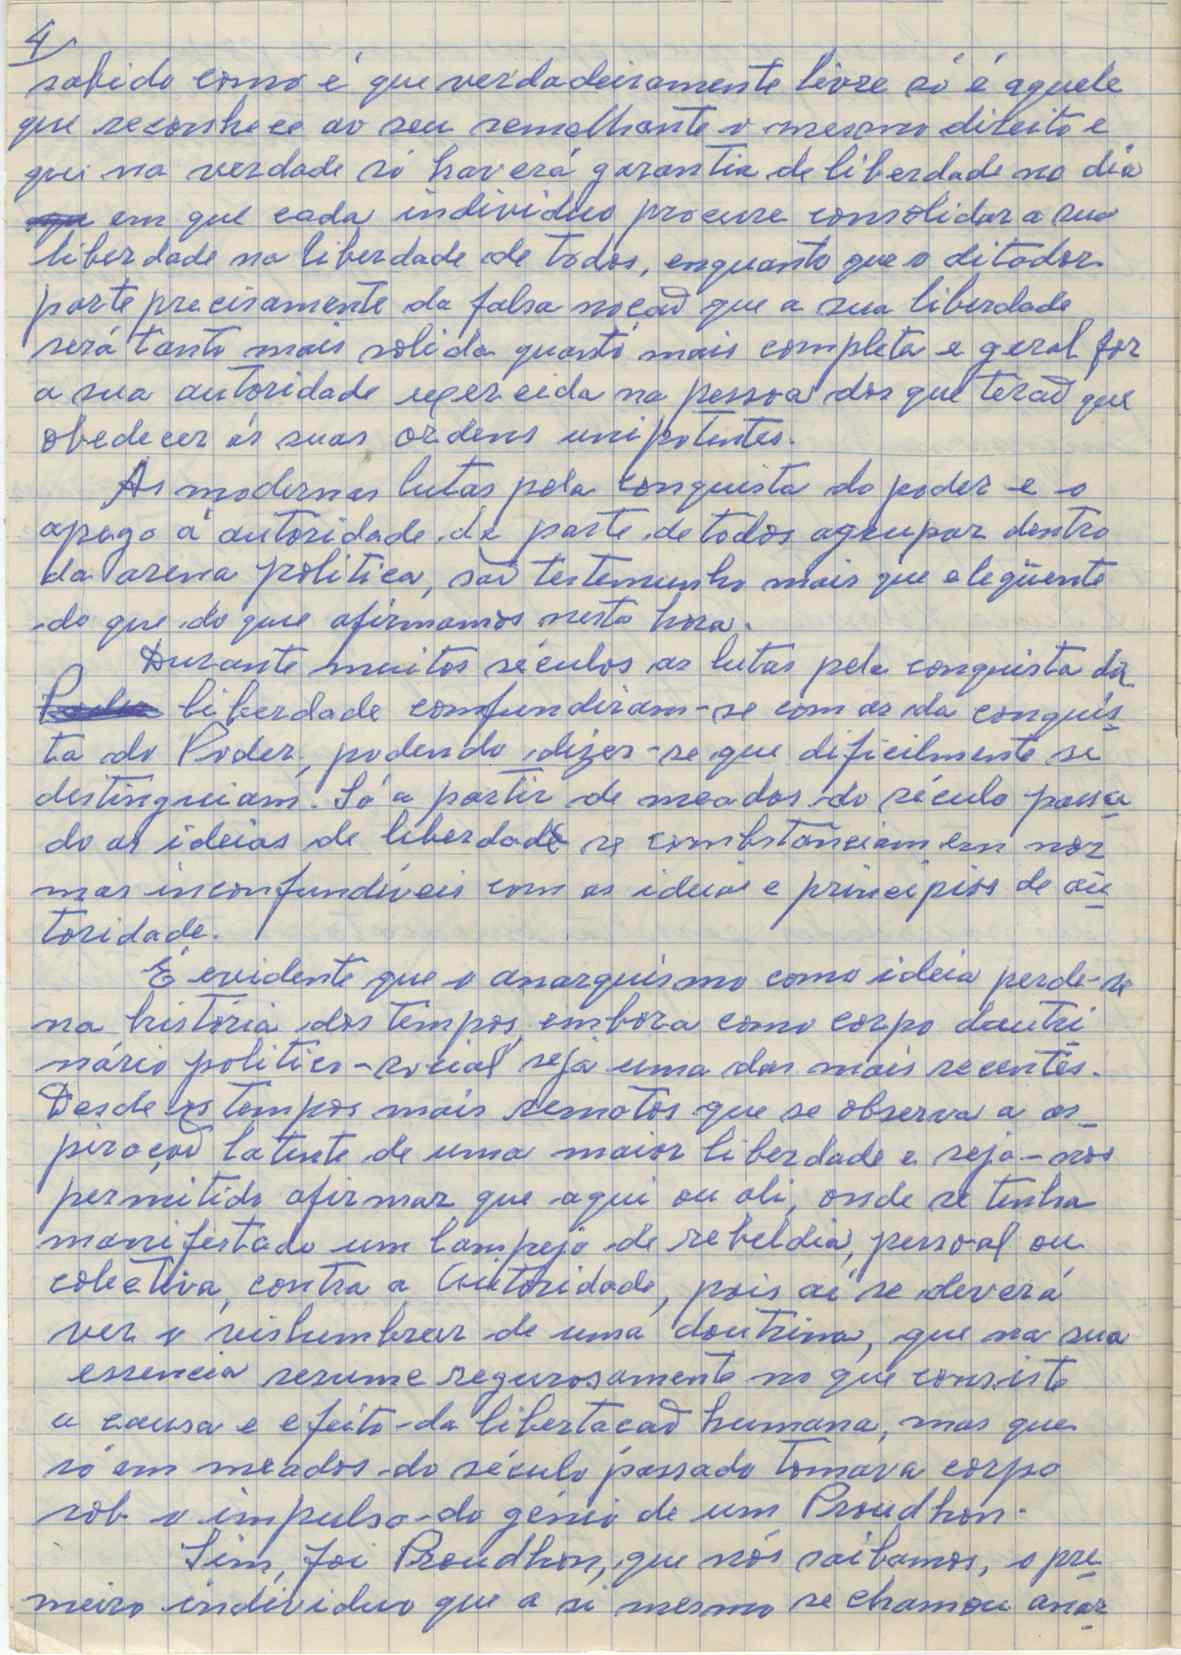 4
sabido como é que verdadeiramente livre só é aquele
que reconhece ao seu semelhante o mesmo direito e
que na verdade só haverá garantia de liberdade no dia
em que cada individuo procure consolidar a sua
liberdade na liberdade de todos, enquanto que o ditador
parte precisamente da falsa noção que a sua liberdade
será tanto mais solida quanto mais completa e geral for
a sua autoridade exercida na pessoa dos que terão que
obedecer ás suas ordens unipotentes.
As modernas lutas pela conquista do poder e o
apego á autoridade de parte de todos agrupar dentro
da arena politica, são testemunho mais que eleqüente
do que do que afirmamos nesta hora.
Durante muitos séculos as lutas pela conquista da
liberdade comfundiram-se com as da conquis
ta do Poder, podendo dizer-se que dificilmente se
destinguiam. Só a partir de meados do século passa
do as ideias de liberdade se combstanciam em nor
mas inconfundíveis com as ideias e principios de au
toridade.
É evidente que o anarquismo como ideia perde-se
na história dos tempos, embora como corpo doutri
nário politico-social seja uma das mais recentes.
Desde os tempos mais remotos que se observa a as
piração latente de uma maior liberdade e seja-nos
permitido afirmar que aqui ou ali, onde se tenha
manifestado um lampejo de rebeldia, pessoal ou
coletiva, contra a Autoridade, pois aí se deverá
ver o vislumbrar de uma doutrina, que na sua
essencia resume regurosamente no que consiste
a causa e efeito da libertação humana, mas que
só em meados do século passado tomava corpo
sob o impulso do génio de um Proudhon.
Sim, foi Proudhon, que nós saibamos, o pre
meiro individuo que a si mesmo se chamou anar